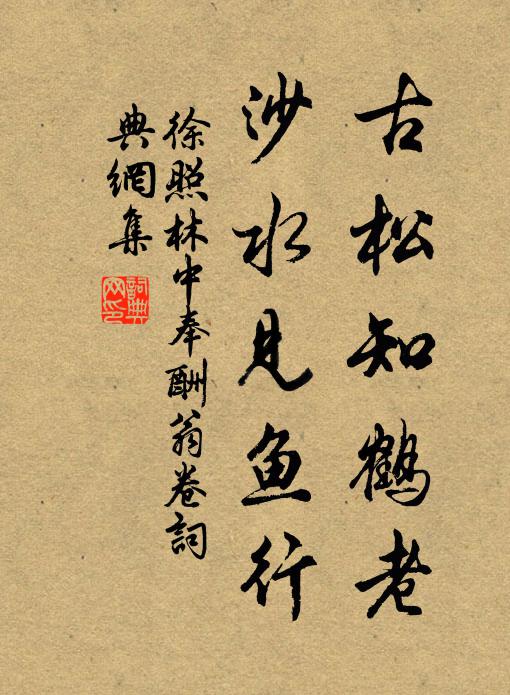 古松知鹤老
沙水见鱼行
徐照林中奉酬翁卷詞
典網集
詞典網印